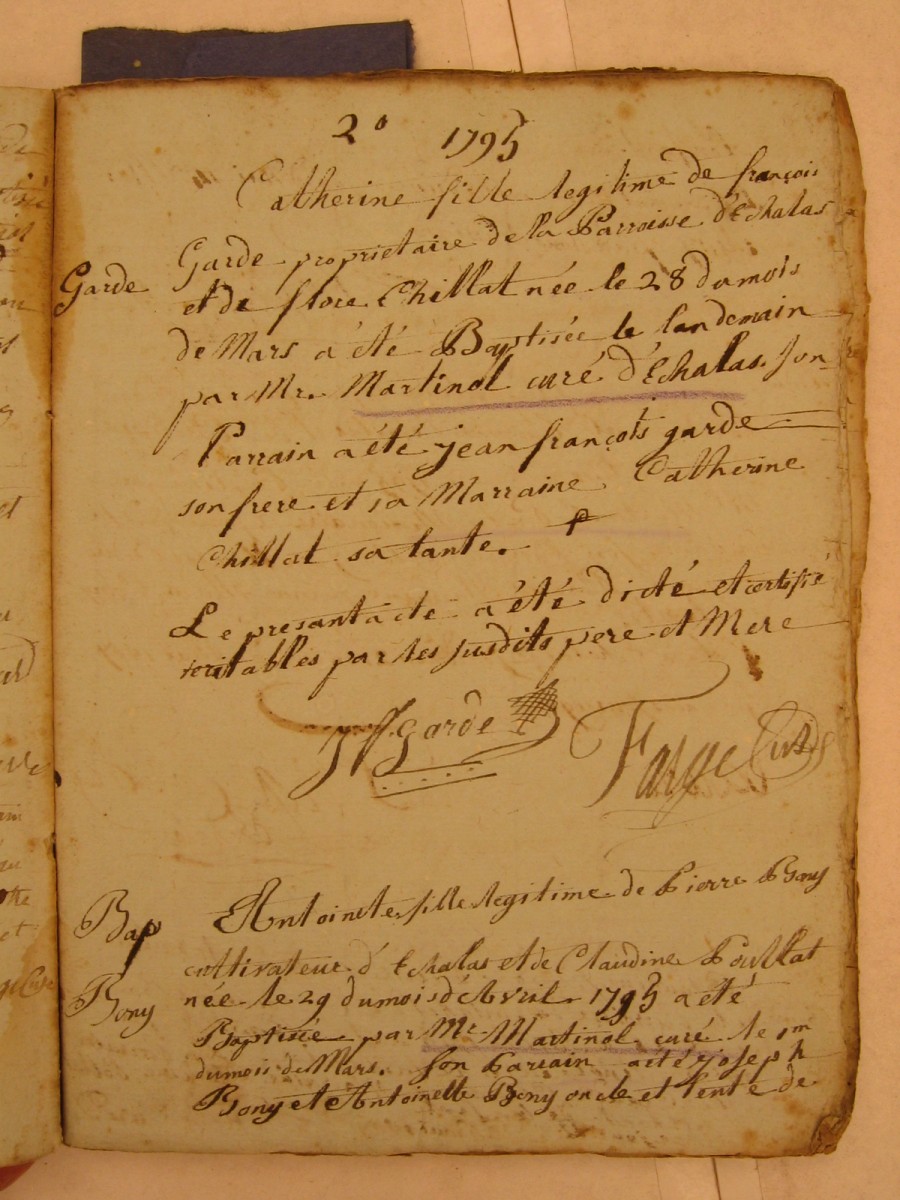 2° 1795
Catherine fille legitime de françois
Garde
Garde proprietaire de la Parroisse d'Echalas
et de flore Chillat née le 28 du mois
de Mars a été Baptisée le landemain
par Mr. Martinol curé d'Echalas. Son
Parrain a été jean françois garde
son frere et sa Marraine Catherine
Chillat sa tante.
Le present acte a été dicté et certifié
veritables par les susdits pere et Mere
J f garde Farge Curé
Bap
Antoinete fille legitime de Pierre Bony
cultivateur d'Echalas et de Claudine
Bony
née le 29 du mois d'Avril 1795 a été
Baptisée par Mr. Martinol curé le 1m
du mois de Mars. Son Parrain a été joseph
Bony et Antoinette Bony oncle et tente de